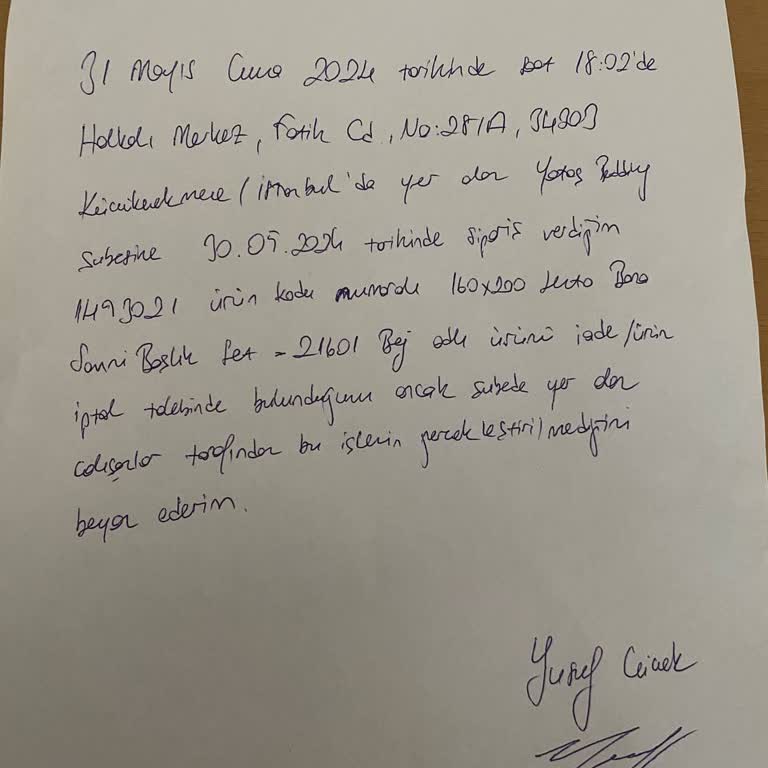 31 Mayıs Cuma 2024 tarihinde saat 18:02'de
Halkalı Merkez, Fatih Cd, No:281A, 34303
Küçükçekmece/İstanbul'da yer alan Yataş Bedding
Şubesine 30.05.2024 tarihinde sipariş verdiğim
1493021 ürün kodu numaralı 160x200 Baza
Başlık Set - 21601 Bej adlı ürünü iade/ürün
iptal talebinde bulunduğumu ancak şubede yer alan
çalışanlar tarafından bu işlemin gerçekleştirilmediğini
beyan ederim.
Yusuf Çiçek